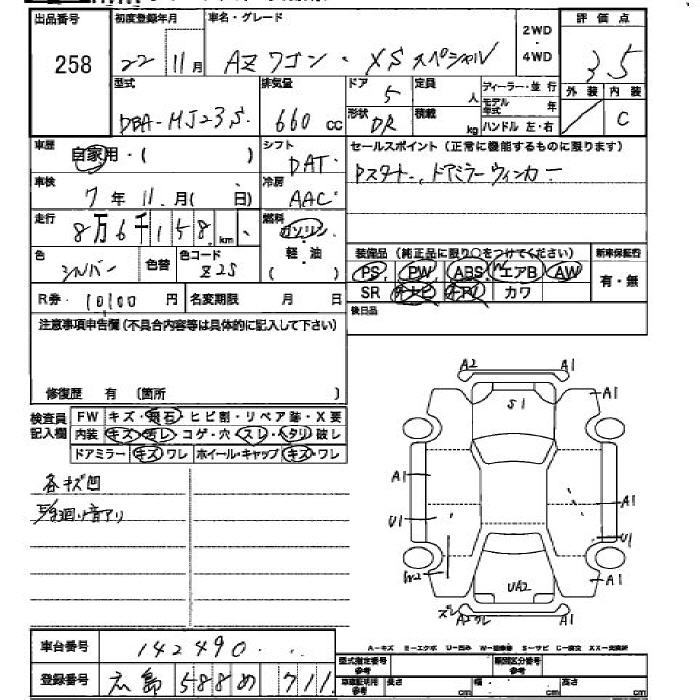 出品番号 初度登録年月 車名・グレード 2WD・4WD 評価点
258 22 11月 AZワゴン・XSスペシャル 3.5
型式 排気量 ドア 定員 ディーラー・並行 外装 内装
DBA-MJ23S 660cc 5 人 モデル年式 年 C
形状 DR 積載 kg ハンドル 左・右
車歴 自家用・( ) シフト DAT セールスポイント(正常に機能するものに限ります)
車検 7年11月( 日) 冷房 AAC Pスタート、ドアミラーウィンカー
走行 8万6千158km 燃料 ガソリン・軽油 ( )
色 シルバー 色替 色コード Z2S
装備品(純正品に限り○をつけてください) 新車保証書
PS PW ABS Wエアバ AW 有・無
SR ナビ カワ
R券 10100円 名変期限 月 日 後日品
注意事項申告欄(不具合内容等は具体的に記入して下さい)
修復歴 有 〔箇所 〕
検査員記入欄 FW キズ・飛石・ヒビ割・リペア跡・X要
内装 キズ・汚レ・コゲ・穴・スレ・ヘタリ・破レ
ドアミラー キズ・ワレ ホイール・キャップ キズ・ワレ
各キズ凹
A2 A1
S1 A1
A1 A1
U1 U1
W2 UA2 A1
A2 A1
車台番号 142490
登録番号 広島 588 め 711
A-キズ E-エクボ U-凹み S-サビ C-腐食
型式指定番号 参考 類別区分番号 参考
車庫証明用 参考 長さ cm 幅 cm 高さ cm